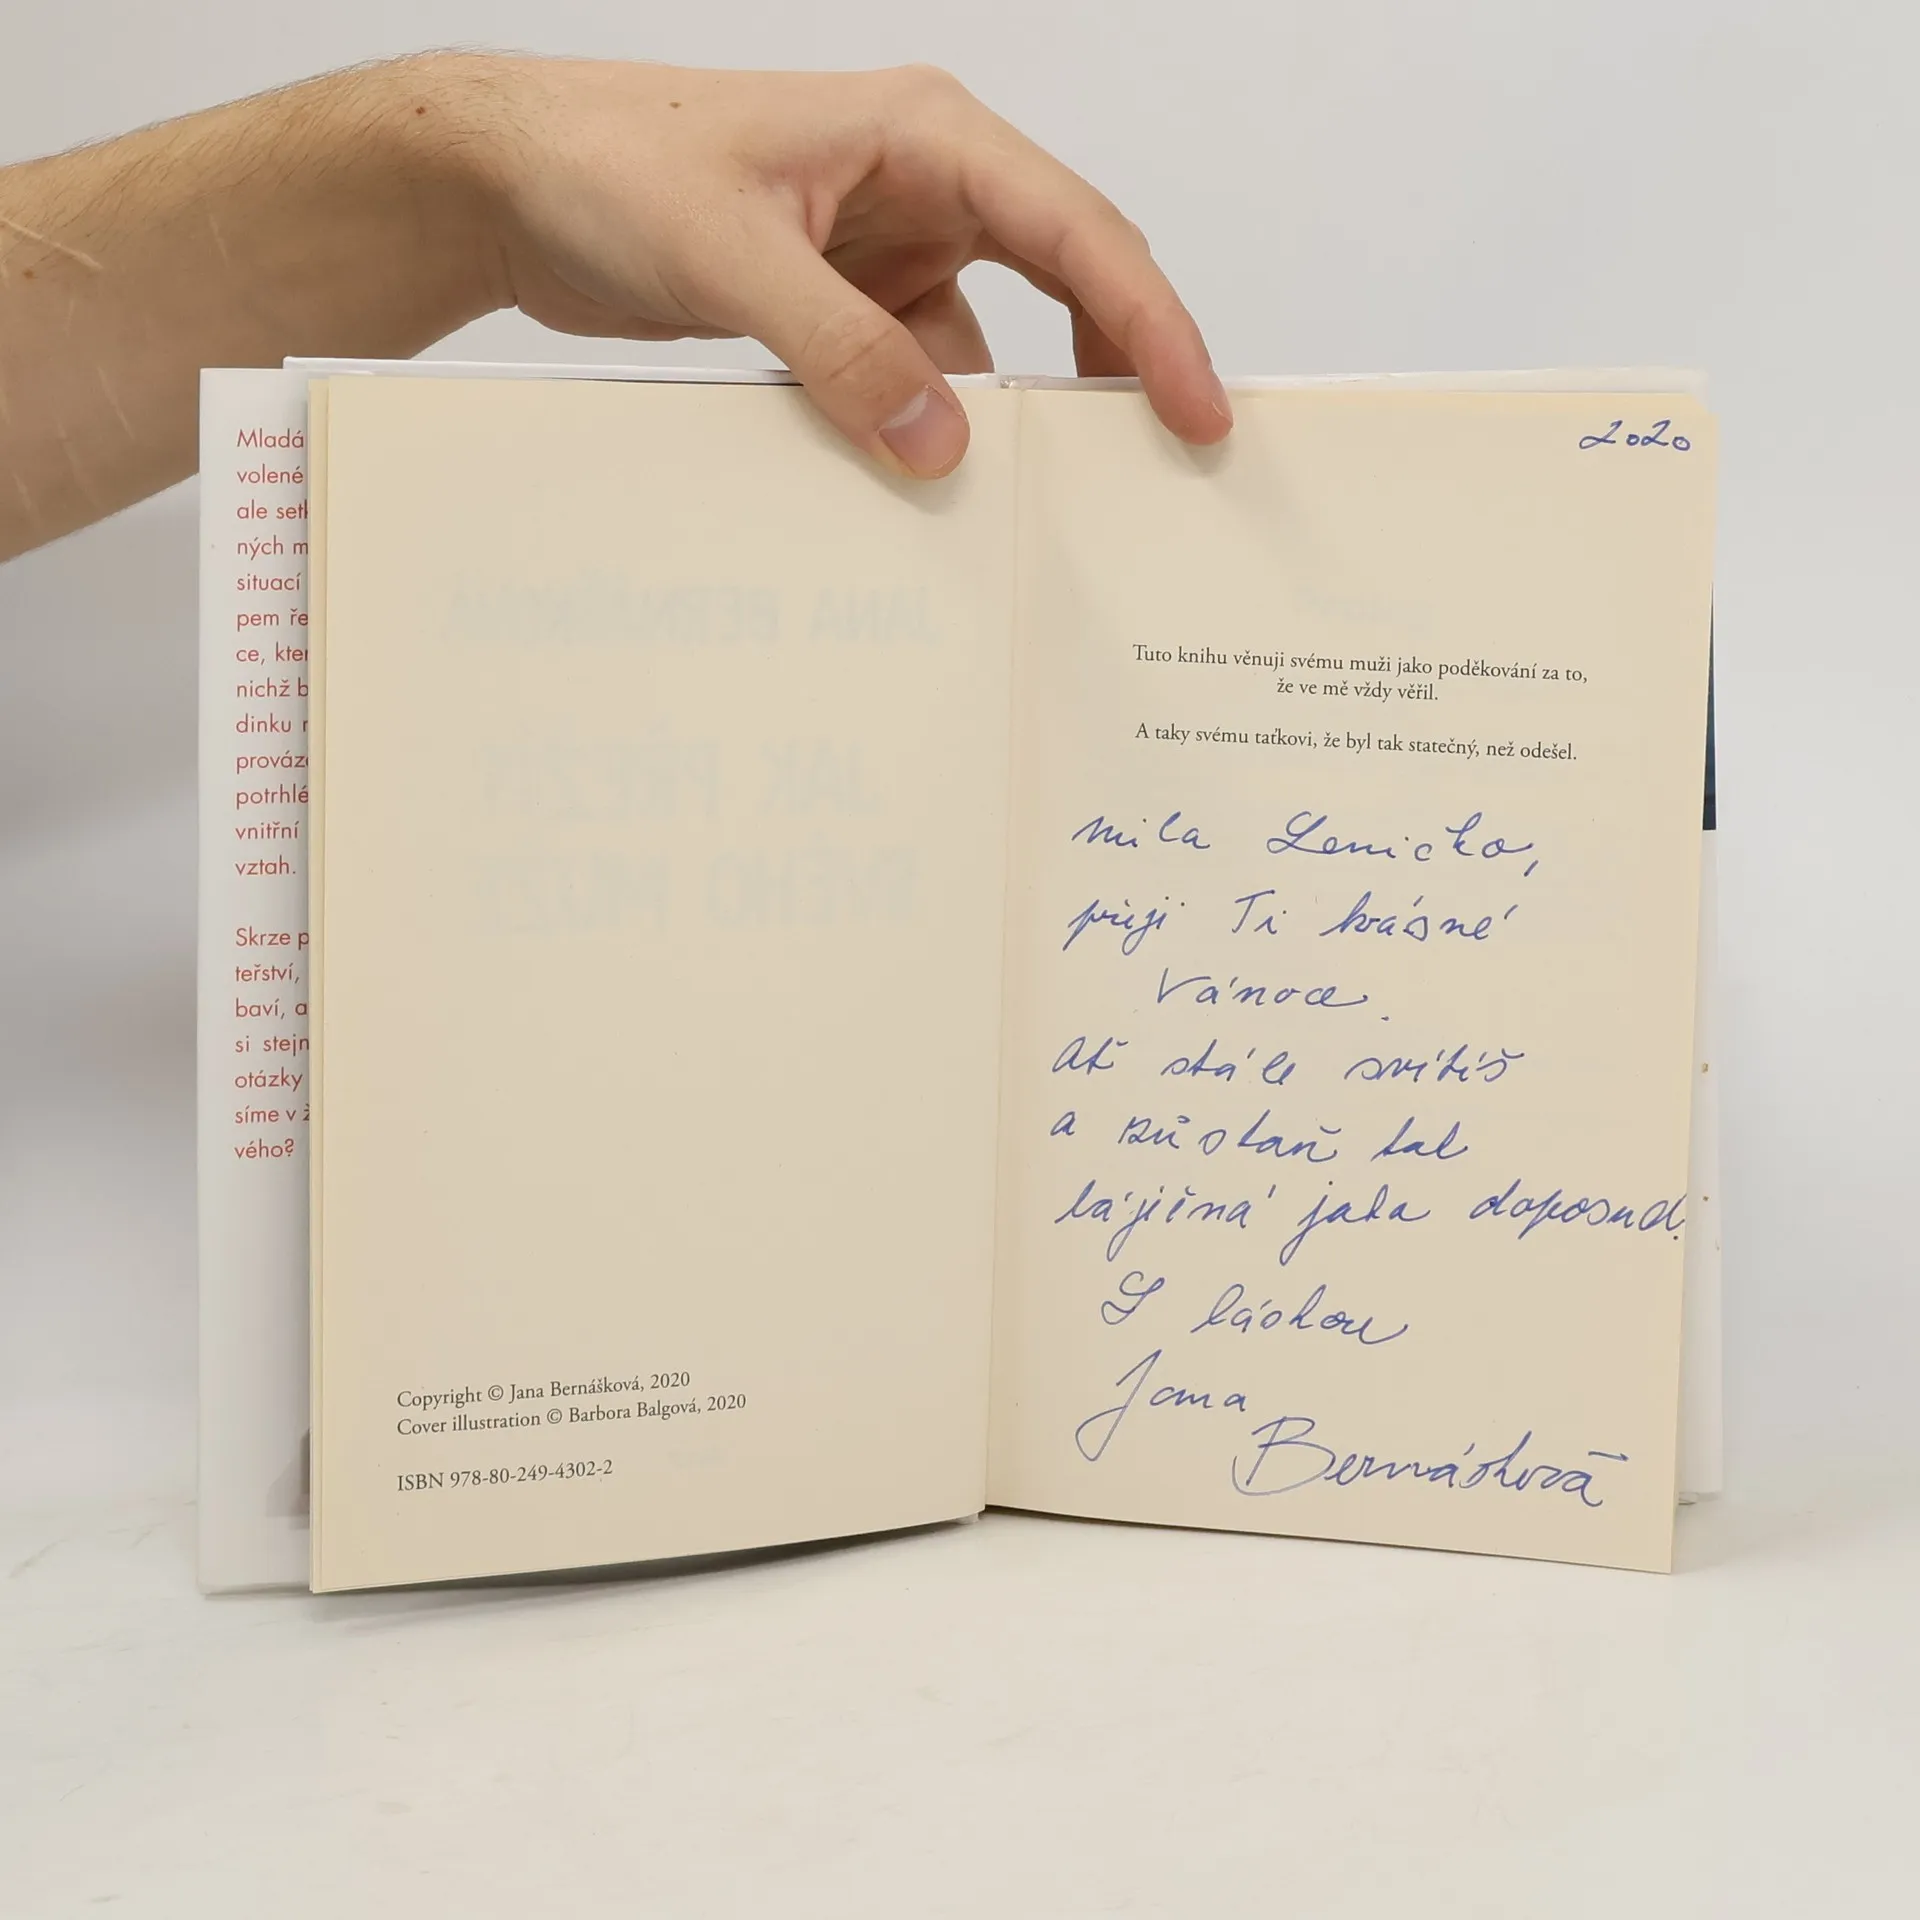 Mladá
volené
ale setk
ných m
situací
pem ře
ce, kter
nichž b
dinku
prováz
potrhlé
vnitřní
vztah.
Skrze p
teřství,
baví, a
si stejn
otázky
síme v ž
vého?
Copyright © Jana Bernášková, 2020
Cover illustration © Barbora Balgová, 2020
ISBN 978-80-249-4302-2
2020
Tuto knihu věnuji svému muži jako poděkování za to,
že ve mě vždy věřil.
A taky svému taťkovi, že byl tak statečný, než odešel.
mila Leničko,
přeji Ti krásné
Vánoce.
Ať stále svítíš
a zůstaň tak
báječná jako doposud.
S láskou
Jana
Bernášková